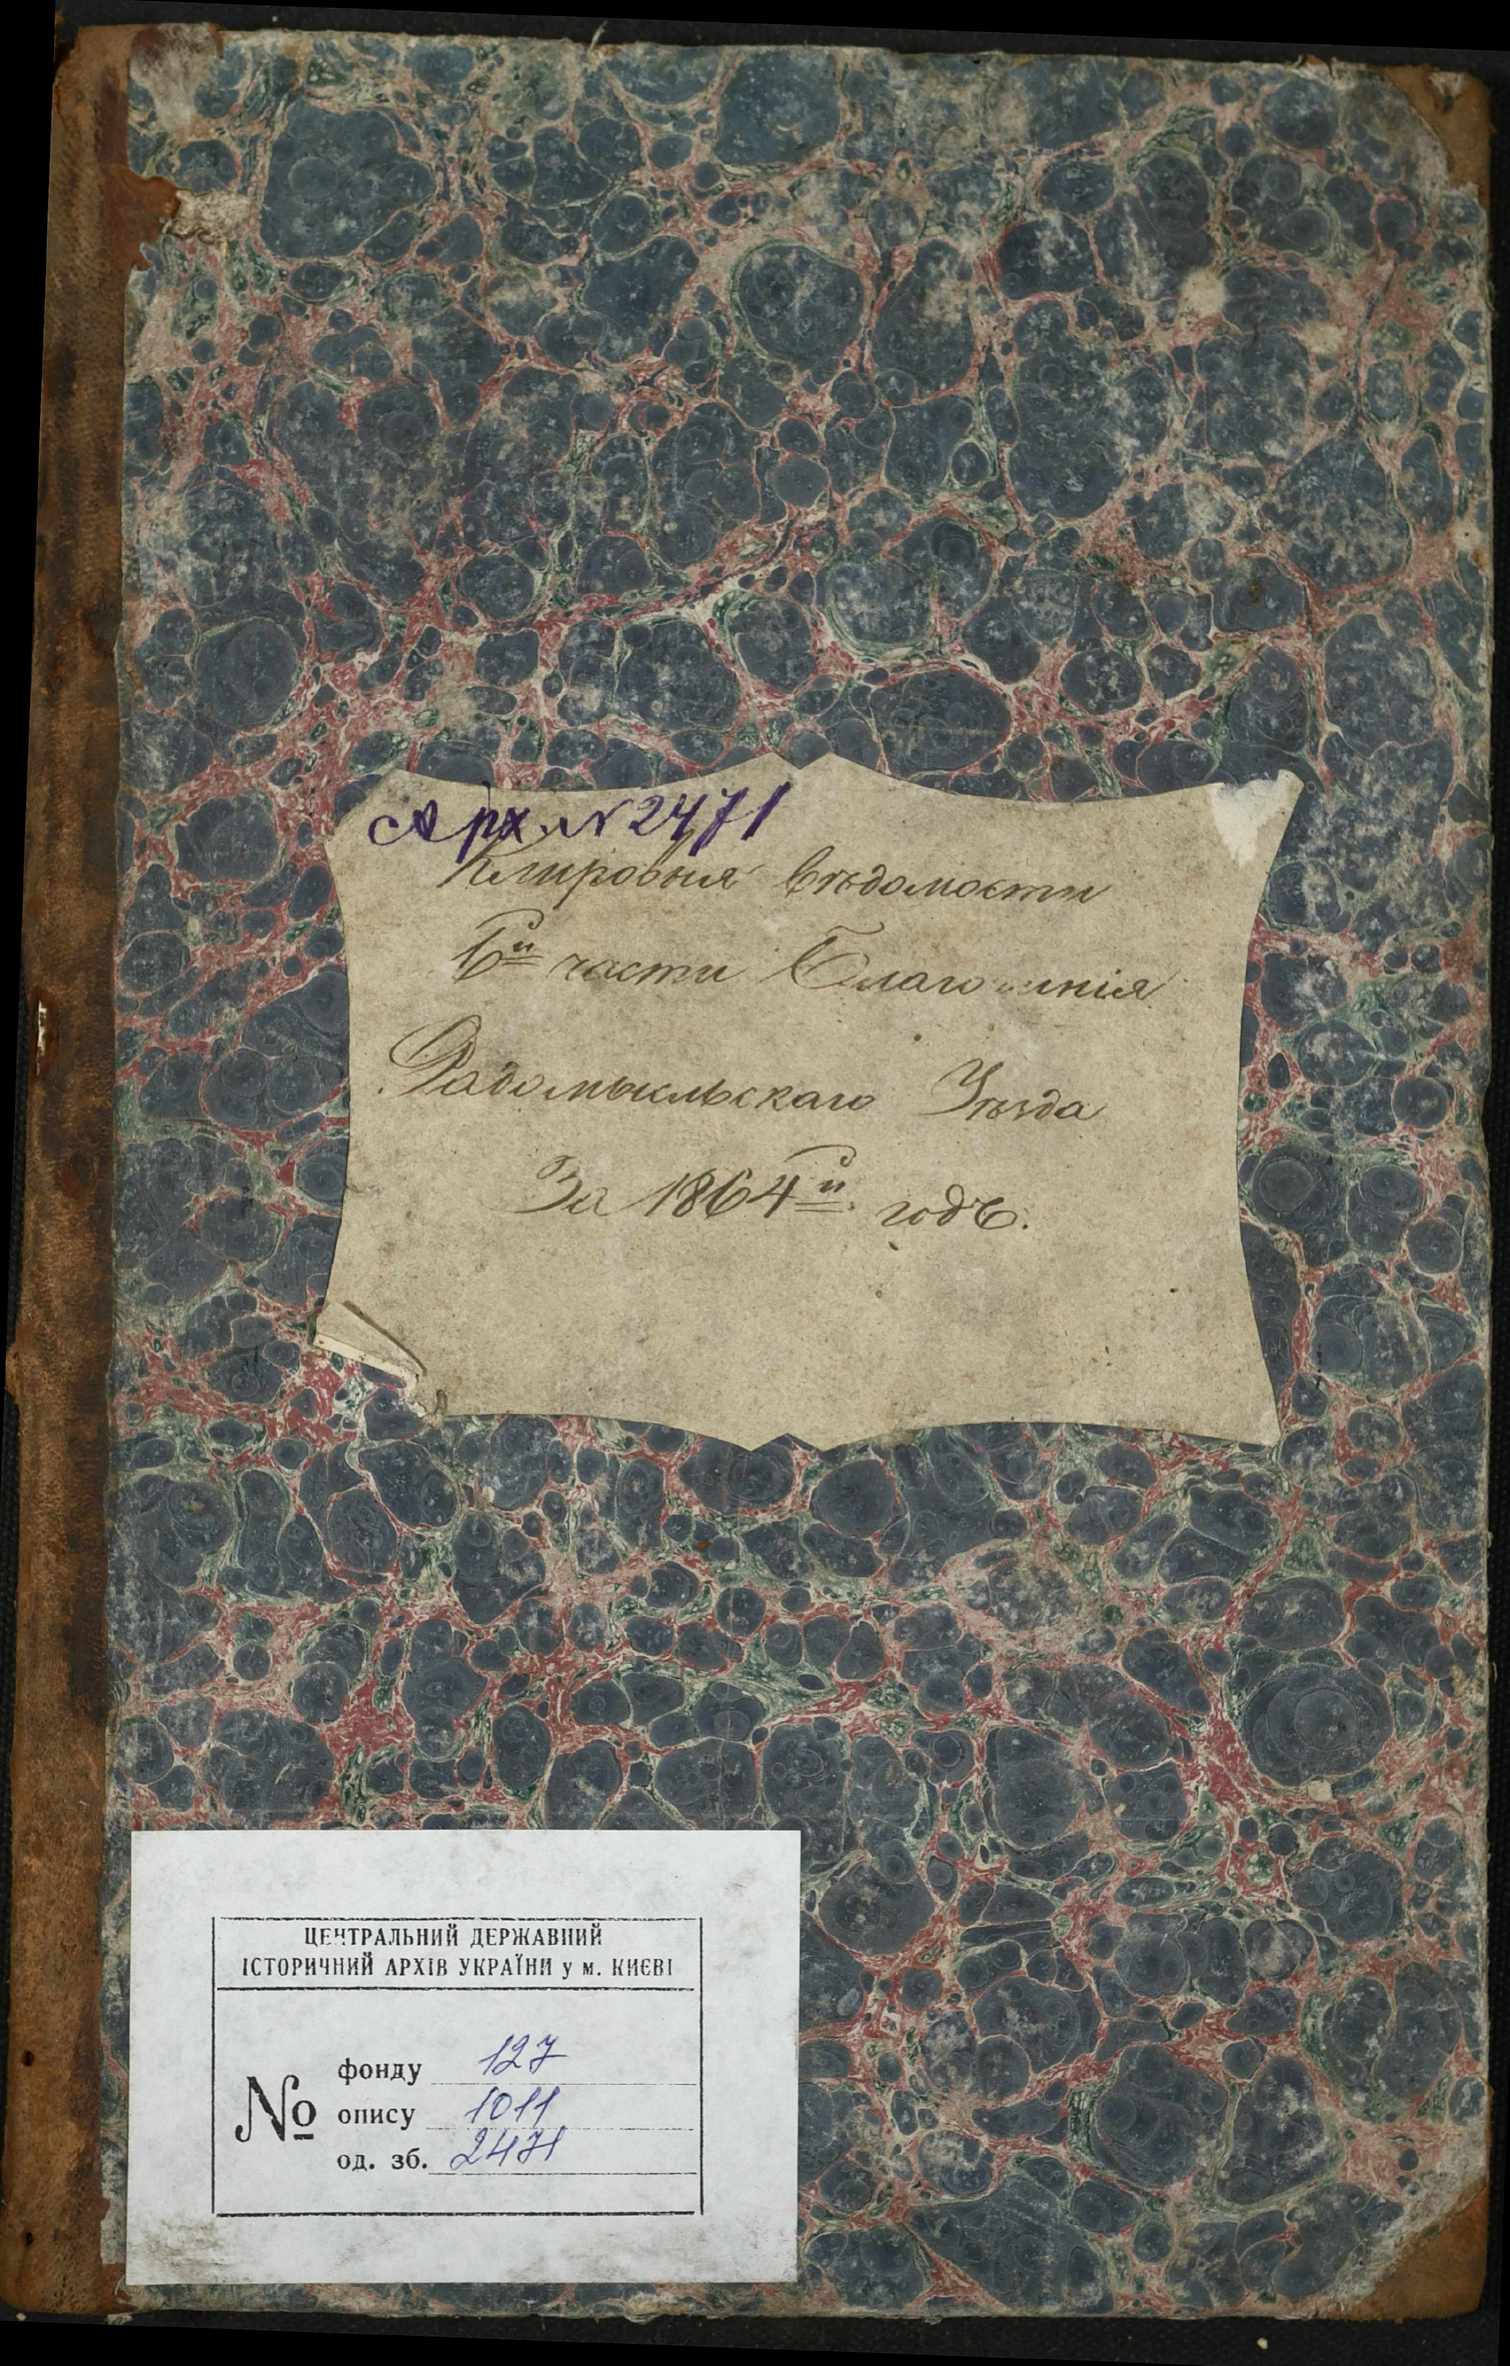 Арх. № 2471
Клировыя вѣдомости
6й части Благочинія
Радомысльскаго Уѣзда
За 1864й годъ.
ЦЕНТРАЛЬНИЙ ДЕРЖАВНИЙ
ІСТОРИЧНИЙ АРХІВ УКРАЇНИ у м. КИЄВІ
№
фонду 127
опису 1011
од. зб. 2471